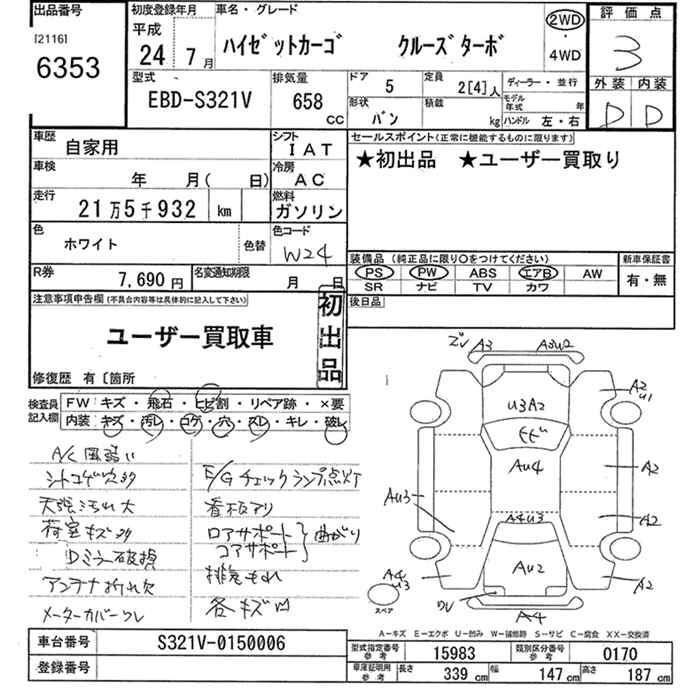 出品番号
[2116]
6353
初度登録年月
平成
24年7月
車名・グレード
ハイゼットカーゴ クルーズターボ
2WD
・
4WD
評価点
3
外装 内装
D D
型式
EBD-S321V
排気量
658
CC
ドア
5
定員
2[4]人
形状
バン
積載
kg
ディーラー・並行
モデル年式 年
ハンドル 左・右
車歴
自家用
シフト
IAT
車検
年 月( 日)
冷房
AC
走行
21万5千932 km
燃料
ガソリン
色
ホワイト
色替
色コード
W24
R券
7,690円
名変通知期限
月 日
セールスポイント(正常に機能するものに限ります)
★初出品 ★ユーザー買取り
装備品(純正品に限り○をつけてください)
PS PW ABS エアB AW
SR ナビ TV カワ
新車保証書
有・無
後日品
注意事項申告欄(不具合内容等は具体的に記入して下さい)
ユーザー買取車
初出品
修復歴 有〔箇所
検査員記入欄
FW キズ・飛石・ヒビ割・リペア跡・×要
内装 キズ・汚レ・コゲ・穴・スレ・キレ・破レ
A/C風弱い
シートコゲ穴多
天張汚れ大
荷室キズ多
Dミラー破損
アンテナ折れ欠
メーターカバーワレ
E/Gチェックランプ点灯
看板アリ
ロアサポート
コアサポート
曲がり
排気もれ
各キズ凹
A3
A3U2
U3A2
ヒビ
A2
U1
AU4
A2
AU3
A4U3
A2
AU2
A4
U3
A2
ワレ
A4
スペア
A-キズ E-エクボ U-凹み W-補修跡 S-サビ C-腐食 XX-交換済
車台番号
S321V-0150006
登録番号
型式指定番号
参考
15983
類別区分番号
参考
0170
車庫証明用
参考
長さ
339 cm
幅
147 cm
高さ
187 cm